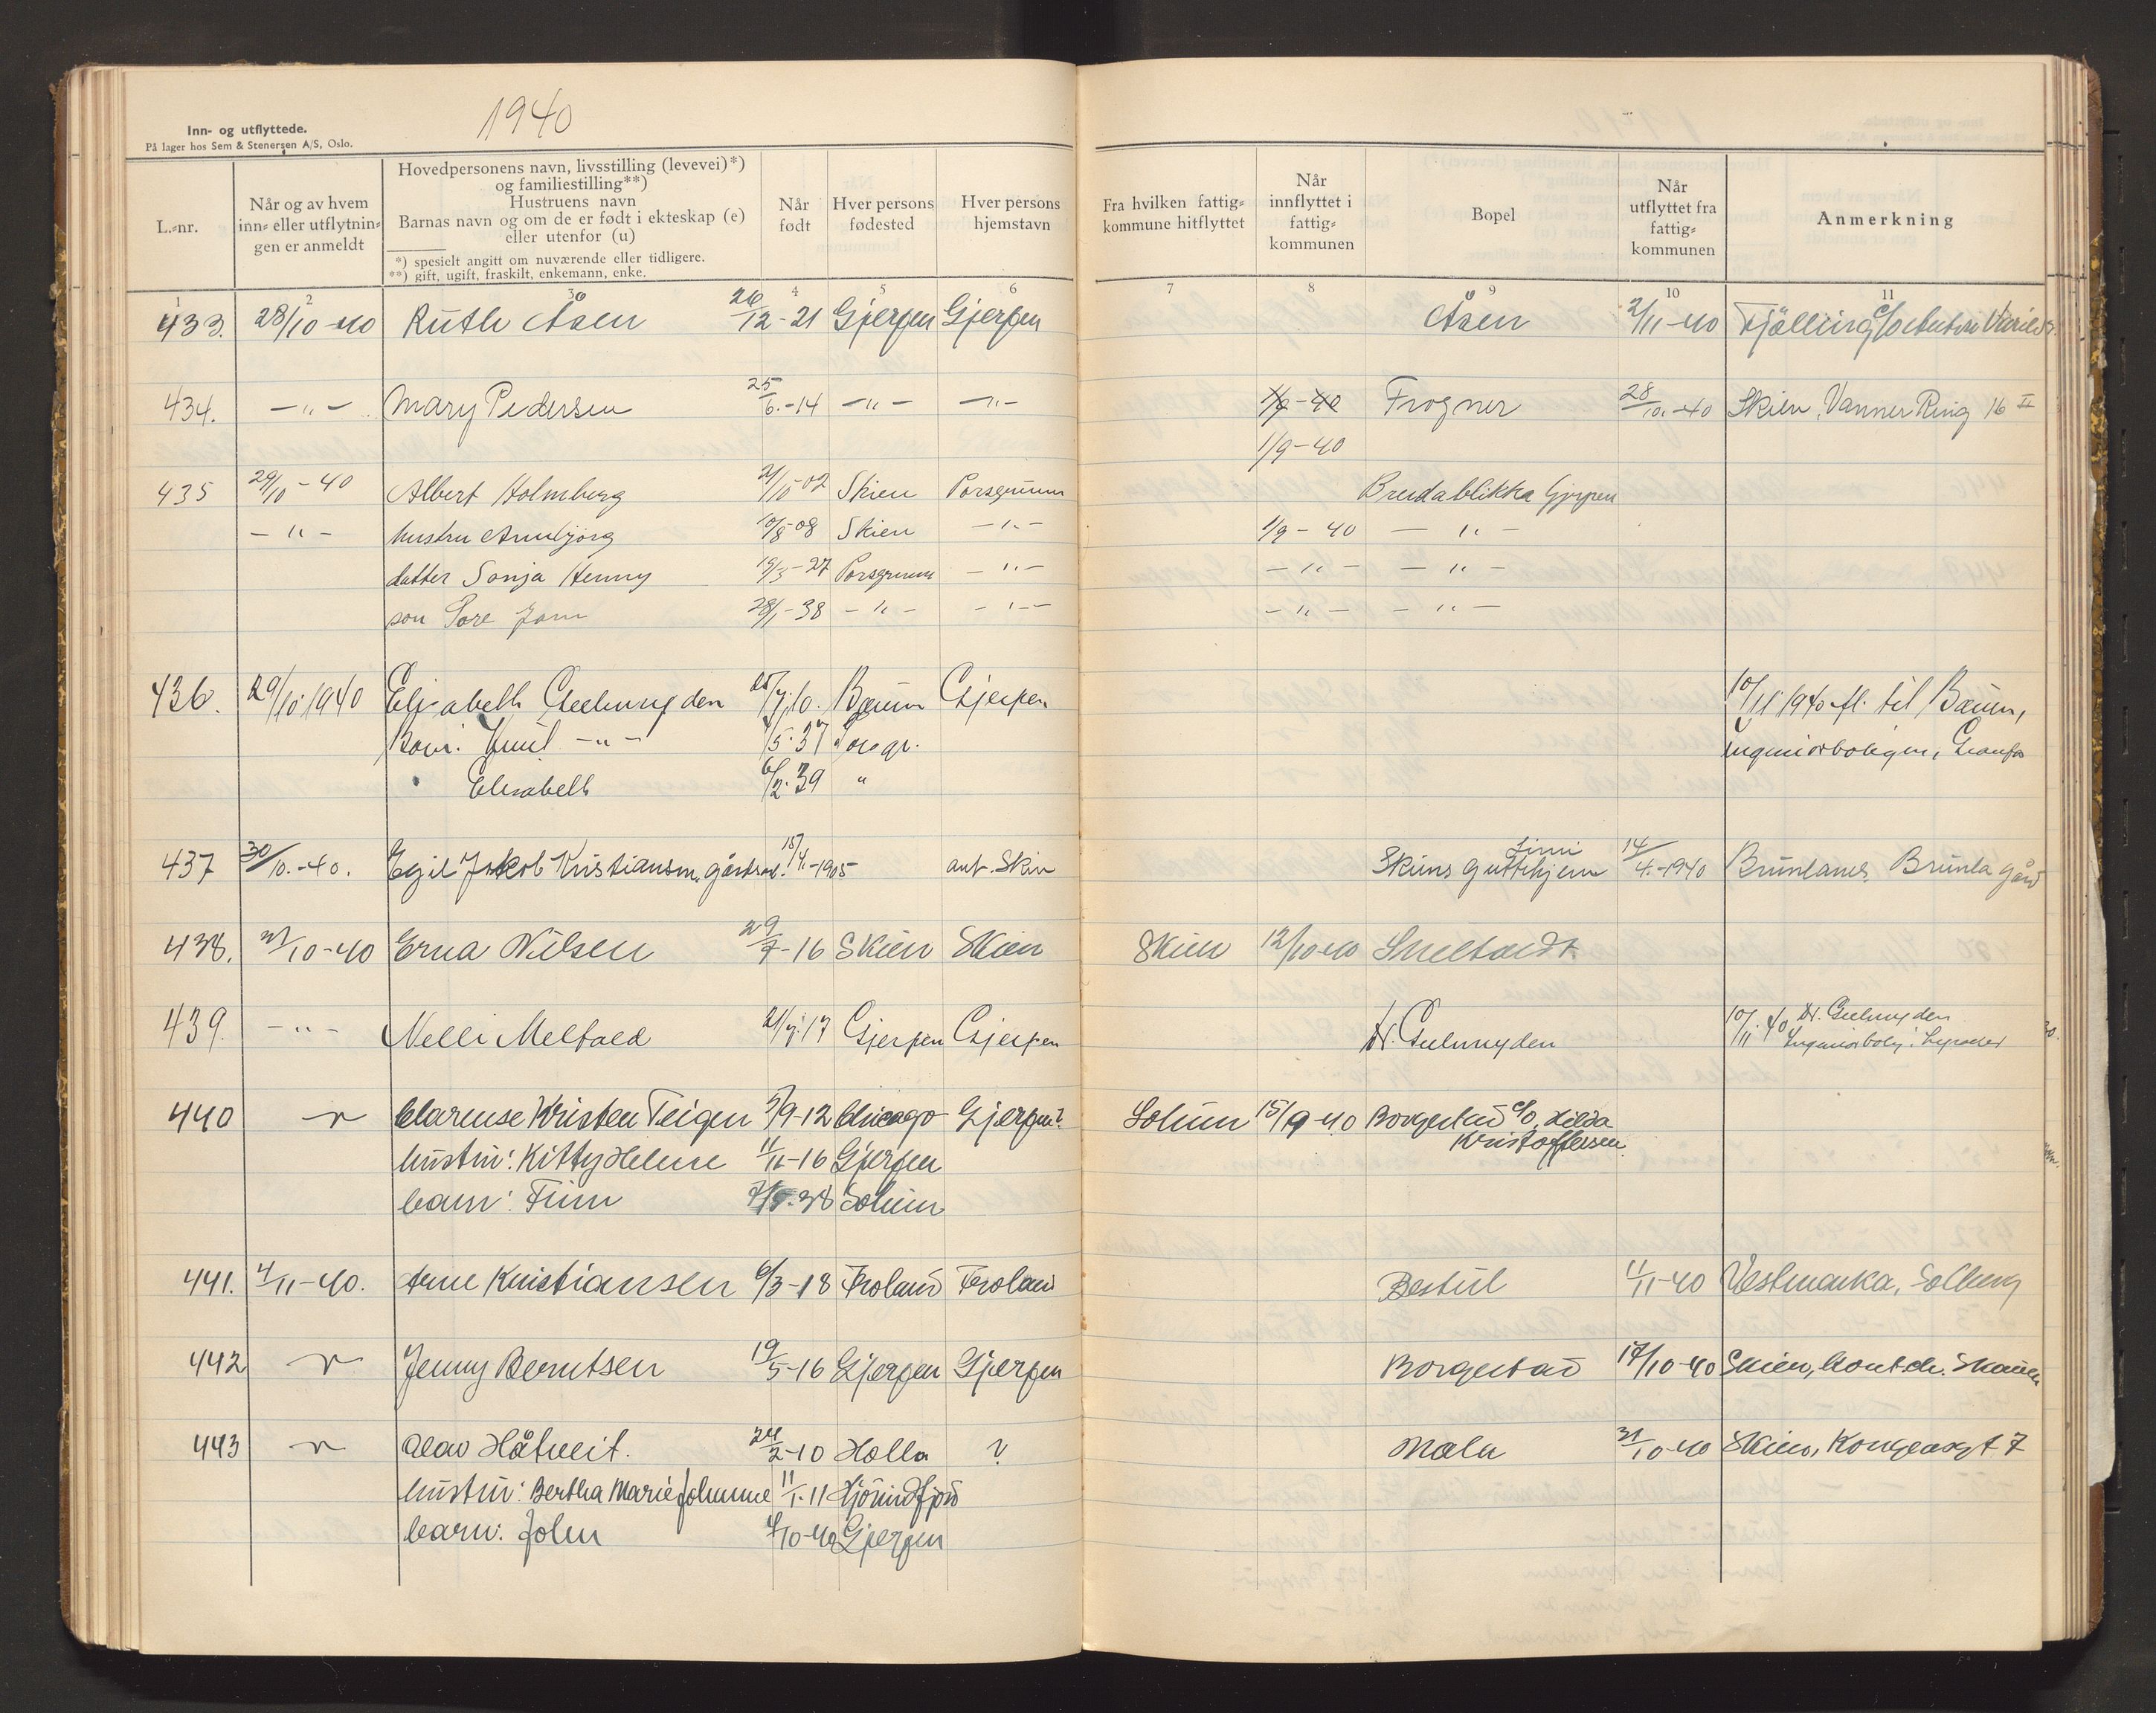 1940
Inn- og utflyttede.
På lager hos Sem & Stenersen A/S, Oslo.
L.-nr.
Når og av hvem inn- eller utflytnin-gen er anmeldt
Hovedpersonens navn, livsstilling (levevei)*) og familiestilling**)
Hustruens navn
Barnas navn og om de er født i ekteskap (e) eller utenfor (u)
*) spesielt angitt om nuværende eller tidligere.
**) gift, ugift, fraskilt, enkemann, enke.
Når født
Hver persons fødested
Hver persons hjemstavn
Fra hvilken fattig-kommune hitflyttet
Når innflyttet i fattig-kommunen
Bopel
Når utflyttet fra fattig-kommunen
Anmerkning
1 2 3 4 5 6 7 8 9 10 11
433. 28/10-40 Ruth Åsen 26/12-21 Gjerpen Gjerpen Åsen 2/11-40 Fjälling c/o
434. -"- Mary Pedersen 25/6.-14 -"- -"- 1/9-40 Frogner 28/10.-40 Skien, Vanner Ring 16 II
1/9-40
435 29/10-40 Albert Holmberg 21/10-02 Skien Porsgrunn Breidablikka Gjerpen
-"- hustru Annbjörg 10/8-08 Skien -"- 1/9-40 -"-
datter Sonja Henny 19/3-27 Porsgrunn -"- -"- -"-
son Tore Jarn 28/1-38 -"- -"- -"- -"-
436. 29/10.1940 Elisabeth Geelmuyden 25/7.10. Bærum Gjerpen 10/11 1940 fl. til Bærum,
Barn: Knut -"- 5.37 Porsgr. Ingeniørboligen,
" Elisabeth 6/2.39 "
437 30/10.-40. Egil Jakob Kristiansen, gårdsarb. 15/4.-1905 ant. Skien Skiens guttehjem 14/4.-1940 Brunlanes, Brunla gård
438. 31/10-40 Erna Nilsen 29/7-16 Skien Skien Skien 12/10-40 Smeltardt.
439. -"- Nelli Melbaed 21/7.17 Gjerpen Gjerpen Dr. Geelmuyden 10/11.40 Dr. Geelmuyden
440 Clarense Kristen Teigen 7/9-12 Chicago Gjerpen? Solum 15/9-40 Borgestad c/o. Hilda
Kristoffersen.
hustru: Kitty Helene 11/11-16 Gjerpen
barn: Finn 38 Solum
441. 4/11-40. Arne Kristiansen 6/3-18 Froland Froland Bestul 11/11-40 Vestmarka, Solberg
442 Jenny Berntsen 19/5-16 Gjerpen Gjerpen Borgestad 17/10-40 Skien,
443 Olav Håtveit. 24/2-10 Holla ? Mæla 31/10-40 Skien, Kongensgt 7
hustru: Bertha Marie Johanne 11/1-11 Hjörundfjord
barn: John 4/10-40 Gjerpen